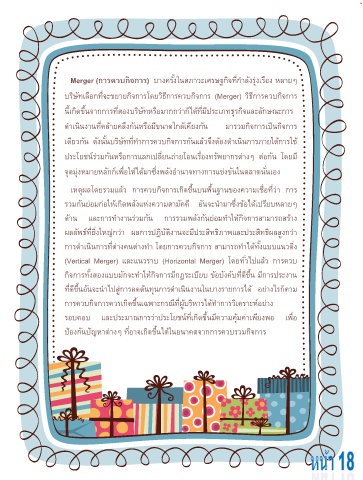 Merger (การควบกิจการ) บางครั้งในสภาวะเศรษฐกิจที่กำลังรุ่งเรือง หลายๆ
บริษัทเลือกที่จะขยายกิจการโดยวิธีการควบกิจการ (Merger) วิธีการควบกิจการ
นี้เกิดขึ้นจากการที่สองบริษัทหรือมากกว่าก็ได้ที่มีประเภทธุรกิจและลักษณะการ
ดำเนินงานที่คล้ายคลึงกันหรือมีขนาดใกล้เคียงกัน มารวมกิจการเป็นกิจการ
เดียวกัน ดังนั้นบริษัทที่ทำการควบกิจการกันแล้วจึงต้องดำเนินการภายใต้การใช้
ประโยชน์ร่วมกันหรือการแลกเปลี่ยนถ่ายโอนเรื่องทรัพยากรต่างๆ ต่อกัน โดยมี
จุดมุ่งหมายหลักก็เพื่อให้ได้มาซึ่งพลังอำนาจทางการแข่งขันในตลาดนั่นเอง
เหตุผลโดยรวมแล้ว การควบกิจการเกิดขึ้นบนพื้นฐานของความเชื่อที่ว่า การ
รวมกันย่อมก่อให้เกิดพลังแห่งความสามัคคี อันจะนำมาซึ่งข้อได้เปรียบหลายๆ
ด้าน และการทำงานร่วมกัน การรวมพลังกันย่อมทำให้กิจการสามารถสร้าง
ผลลัพธ์ที่ยิ่งใหญ่กว่า ผลการปฏิบัติงานจะมีประสิทธิภาพและประสิทธิผลสูงกว่า
การดำเนินการที่ต่างคนต่างทำ โดยการควบกิจการ สามารถทำได้ทั้งแบบแนวดิ่ง
(Vertical Merger) และแนวราบ (Horizontal Merger) โดยทั่วไปแล้ว การควบ
กิจการทั้งสองแบบมักจะทำให้กิจการมีกฎระเบียบ ข้อบังคับที่ดีขึ้น มีการประงาน
ที่ดีขึ้นอันจะนำไปสู่การลดต้นทุนการดำเนินงานในบางรายการได้ อย่างไรก็ตาม
การควบกิจการควรเกิดขึ้นเฉพาะกรณีที่ผู้บริหารได้ทำการวิเคราะห์อย่าง
รอบคอบ และประมาณการว่าประโยชน์ที่เกิดขึ้นมีความคุ้มค่าเพียงพอ เพื่อ
ป้องกันปัญหาต่างๆ ที่อาจเกิดขึ้นได้ในอนาคตจากการควบรวมกิจการ
หน้า 18